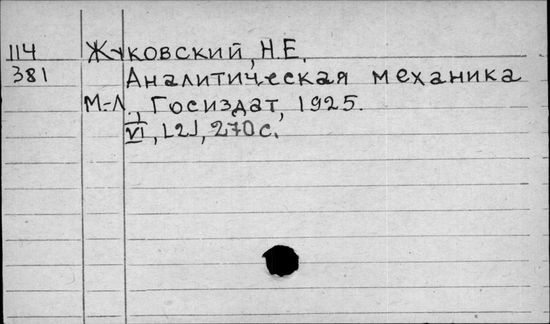 114 Жуковский, Н.Е.
381 Аналитическая механика
М.-Л., Госиздат, 1925.
VI, [2], 270 с.